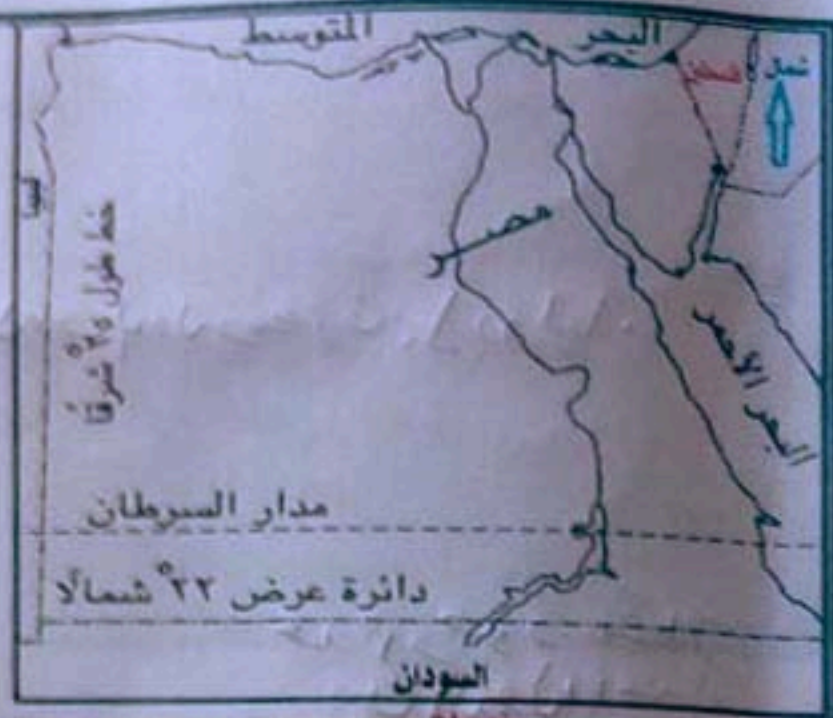 البحر
المتوسط
شمال
ليبيا
خط طول ٢٥° شرقًا
مصر
البحر الأحمر
مدار السرطان
دائرة عرض ٢٢° شمالًا
السودان